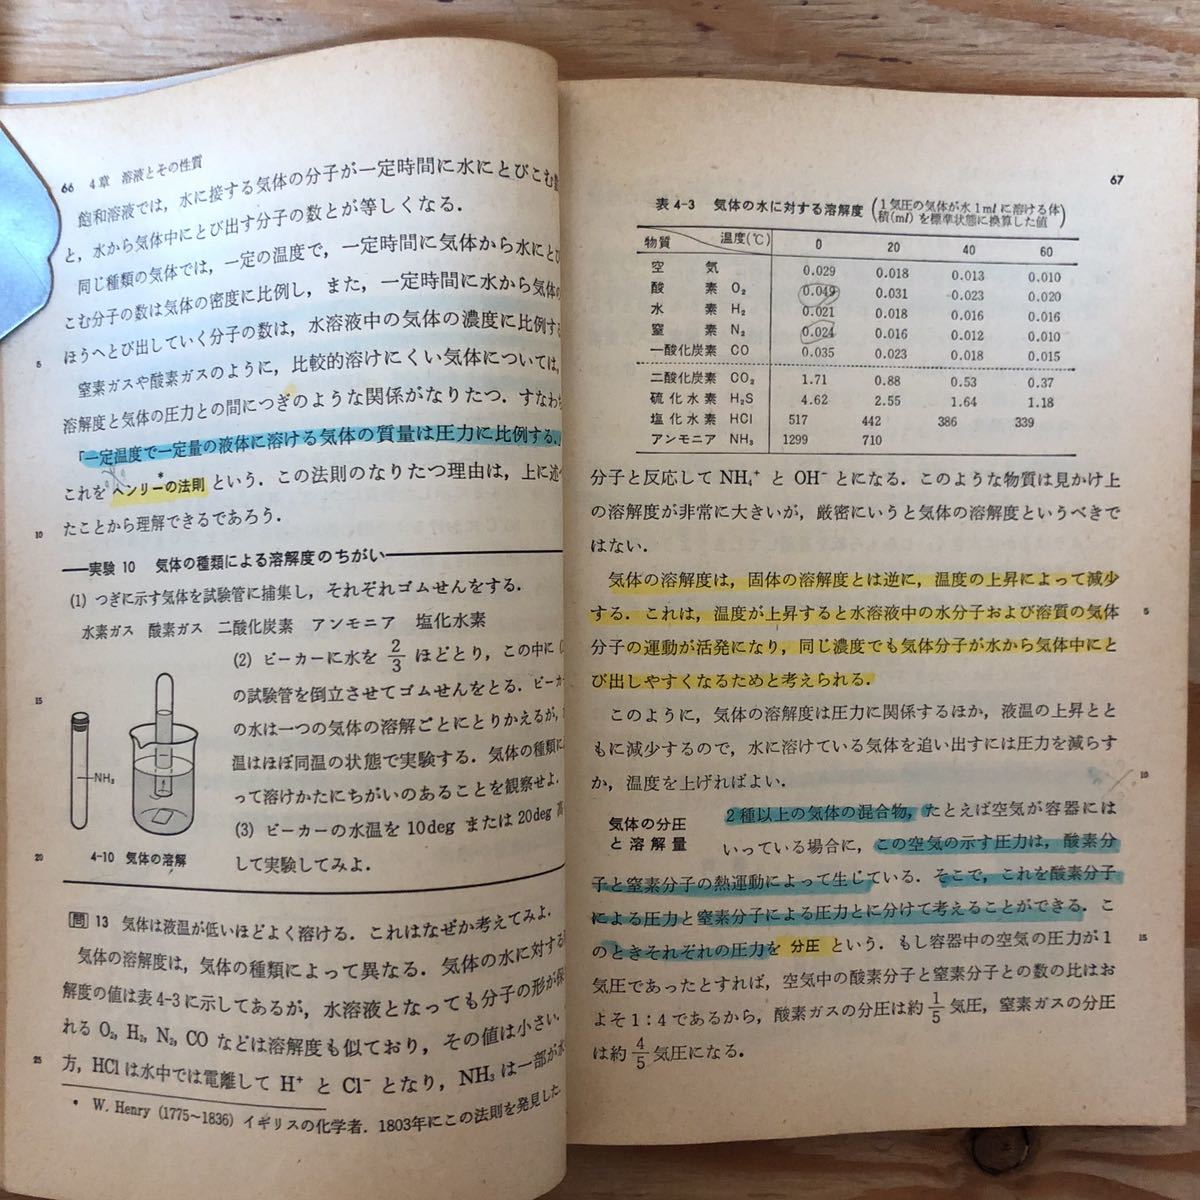 66 4章 溶液とその性質
飽和溶液では，水に接する気体の分子が一定時間に水にとびこむ
と，水から気体中にとび出す分子の数とが等しくなる．
同じ種類の気体では，一定の温度で，一定時間に気体から水にと
こむ分子の数は気体の密度に比例し，また，一定時間に水から気体の
ほうへとび出していく分子の数は，水溶液中の気体の濃度に比例す
5
窒素ガスや酸素ガスのように，比較的溶けにくい気体については，
溶解度と気体の圧力との間につぎのような関係がなりたつ．すなわち
「一定温度で一定量の液体に溶ける気体の質量は圧力に比例する．」
これをヘンリーの法則*という．この法則のなりたつ理由は，上に述べ
10
たことから理解できるであろう．
実験 10 気体の種類による溶解度のちがい
(1) つぎに示す気体を試験管に捕集し，それぞれゴムせんをする．
水素ガス 酸素ガス 二酸化炭素 アンモニア 塩化水素
(2) ビーカーに水を 2/3 ほどとり，この中に
15
の試験管を倒立させてゴムせんをとる．ビーカ
の水は一つの気体の溶解ごとにとりかえるが，
温はほぼ同温の状態で実験する．気体の種類に
って溶けかたにちがいのあることを観察せよ．
(3) ビーカーの水温を 10deg または 20deg 高
20
して実験してみよ．
NH₃
4-10 気体の溶解
問 13 気体は液温が低いほどよく溶ける．これはなぜか考えてみよ．
気体の溶解度は，気体の種類によって異なる．気体の水に対する
解度の値は表4-3に示してあるが，水溶液となっても分子の形が保
れる O₂, H₂, N₂, CO などは溶解度も似ており，その値は小さい．
25
方，HCl は水中では電離して H⁺ と Cl⁻ となり，NH₃ は一部が水
* W. Henry (1775〜1836) イギリスの化学者．1803年にこの法則を発見した．
67
表 4-3 気体の水に対する溶解度 (1気圧の気体が水1mlに溶ける体積(ml)を標準状態に換算した値)
物質 温度(℃) 0 20 40 60
空気 0.029 0.018 0.013 0.010
酸素 O₂ 0.049 0.031 0.023 0.020
水素 H₂ 0.021 0.018 0.016 0.016
窒素 N₂ 0.024 0.016 0.012 0.010
一酸化炭素 CO 0.035 0.023 0.018 0.015
二酸化炭素 CO₂ 1.71 0.88 0.53 0.37
硫化水素 H₂S 4.62 2.55 1.64 1.18
塩化水素 HCl 517 442 386 339
アンモニア NH₃ 1299 710
分子と反応して NH₄⁺ と OH⁻ とになる．このような物質は見かけ上
の溶解度が非常に大きいが，厳密にいうと気体の溶解度というべきで
はない．
気体の溶解度は，固体の溶解度とは逆に，温度の上昇によって減少
する．これは，温度が上昇すると水溶液中の水分子および溶質の気体
5
分子の運動が活発になり，同じ濃度でも気体分子が水から気体中にと
び出しやすくなるためと考えられる．
このように，気体の溶解度は圧力に関係するほか，液温の上昇とと
もに減少するので，水に溶けている気体を追い出すには圧力を減らす
か，温度を上げればよい．
10
気体の分圧
と溶解量
2種以上の気体の混合物，たとえば空気が容器には
いっている場合に，この空気の示す圧力は，酸素分
子と窒素分子の熱運動によって生じている．そこで，これを酸素分子
による圧力と窒素分子による圧力とに分けて考えることができる．こ
のときそれぞれの圧力を 分圧 という．もし容器中の空気の圧力が1
15
気圧であったとすれば，空気中の酸素分子と窒素分子との数の比はお
よそ1：4であるから，酸素ガスの分圧は約 1/5 気圧，窒素ガスの分圧
は約 4/5 気圧になる．